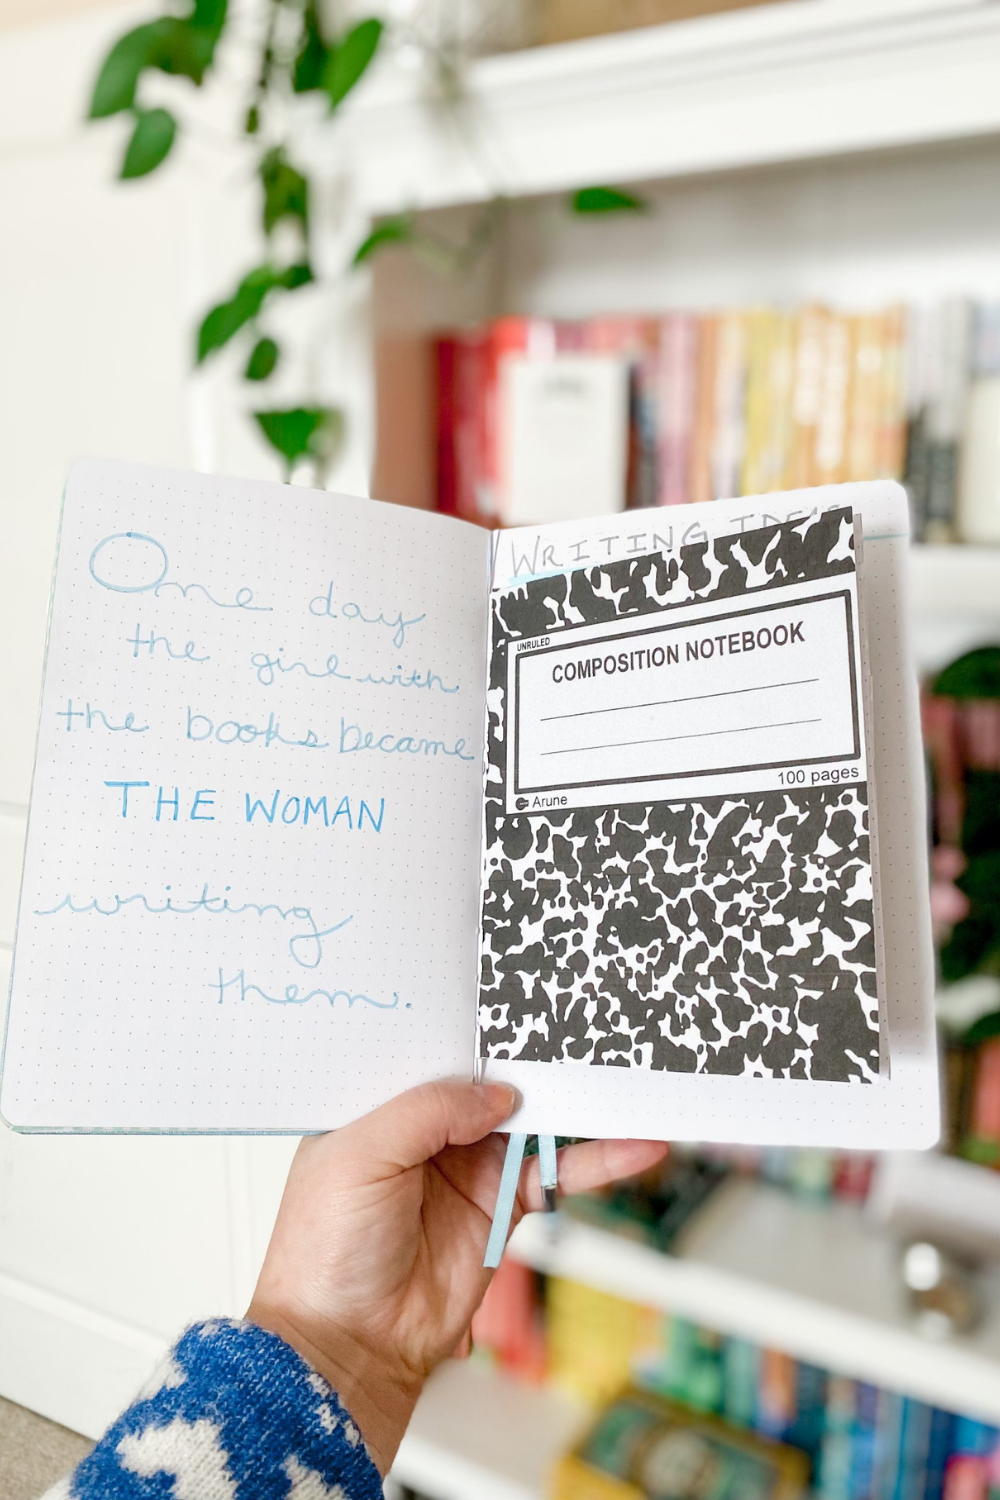 One day
the girl with
the books became
THE WOMAN
writing
them.
WRITING IDEAS
UNRULED
COMPOSITION NOTEBOOK
100 pages
Arune